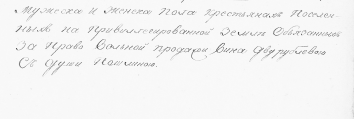 Мужеска и Женска пола Крестьянамъ Поселен-
нымъ на Привиллегированной Земли Обязаннымъ
За Право Вольной продажи Вина Двурублевою
Съ души Пошлиною.